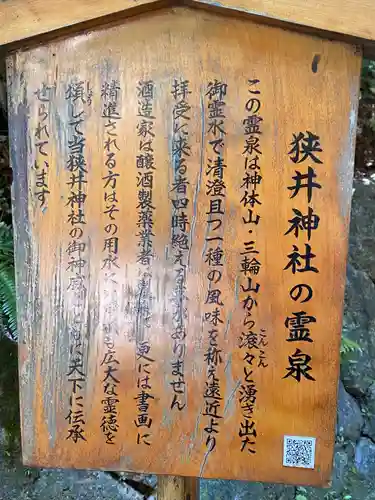 狭井神社の霊泉
この霊泉は神体山・三輪山から滾々と湧き出た
こんこん
御霊水で清澄且つ一種の風味を称え遠近より
拝受に来る者四時絶える事がありません
酒造家は醸酒製薬業者は製薬 更には書画に
精進される方はその用水に も広大な霊徳を
頌して当狭井神社の御神威 ともに天下に伝承
しょう
せられています。